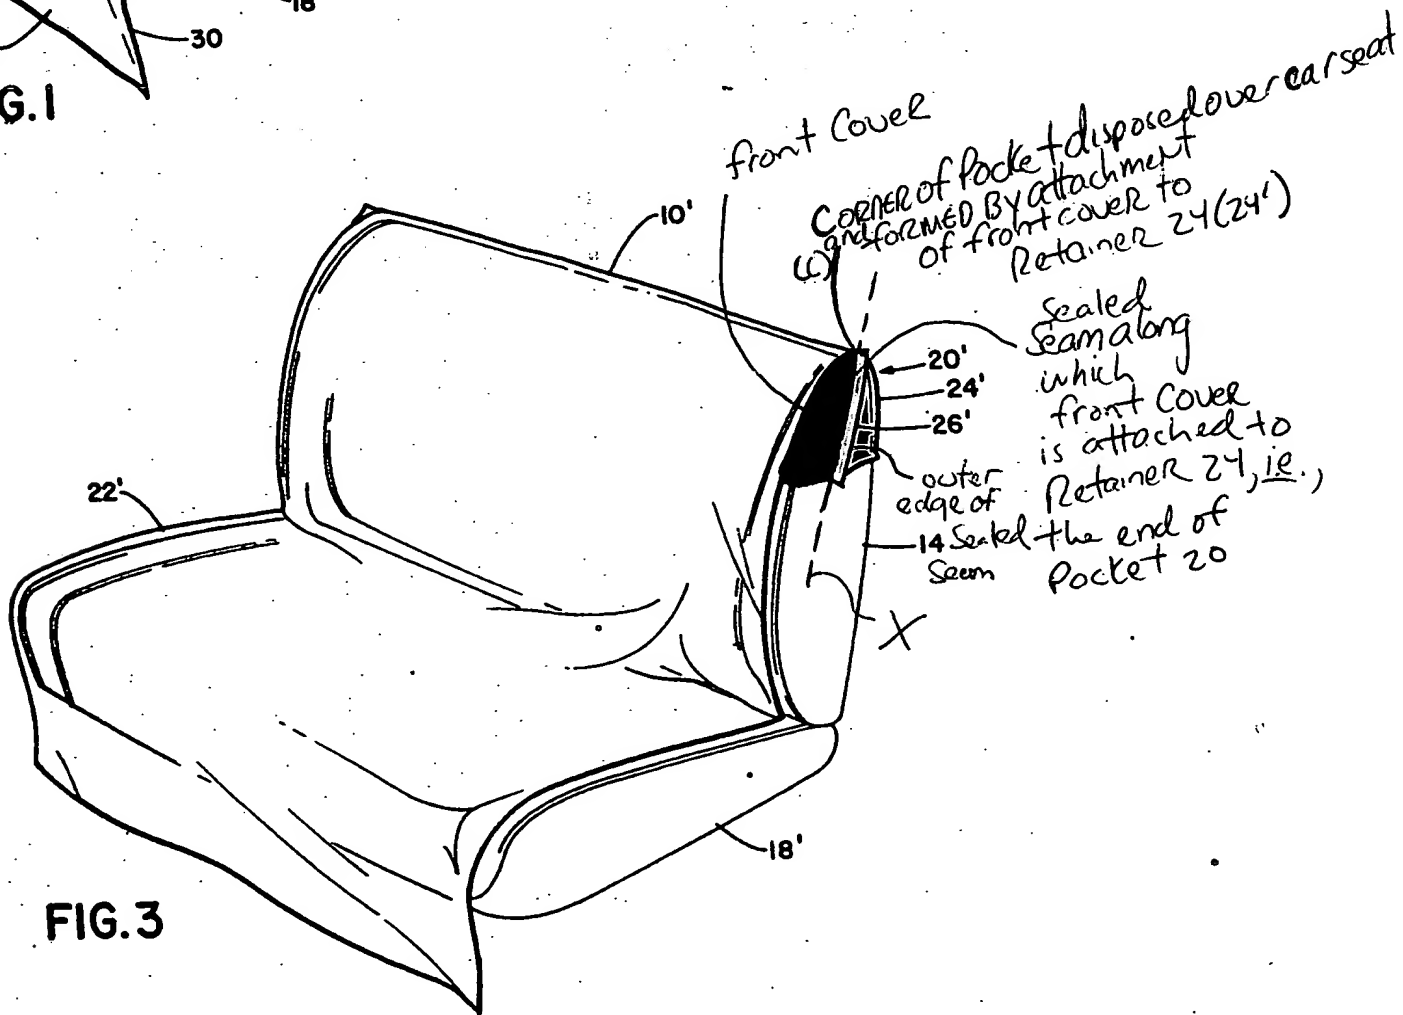 18
30
G.1
front Cover
CORNER of Pocket disposed over car seat
and formed By attachment
(c) of front cover to
Retainer 24 (24')
10'
Sealed
Seam along
which
front Cover
is attached to
Retainer 24, i.e.,
the end of
Pocket 20
20'
24'
26'
outer
edge of
Sealed
Seam
14
X
22'
18'
FIG.3